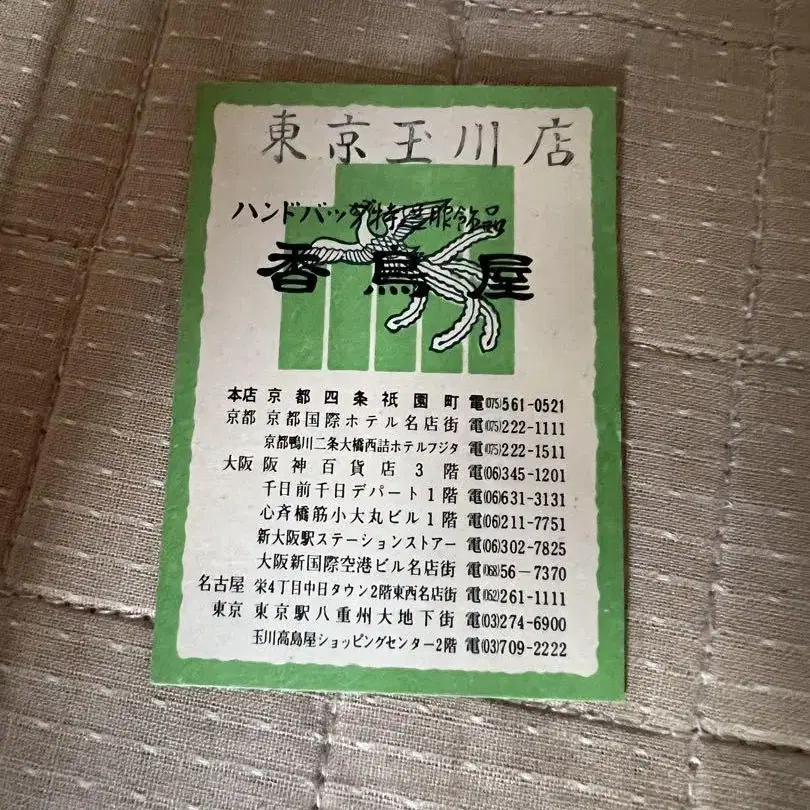 東京玉川店
ハンドバッグ特選服飾品
香鳥屋
本店 京都四条祇園町 電(075)561-0521
京都 京都国際ホテル名店街 電(075)222-1111
京都鴨川二条大橋西詰ホテルフジタ 電(075)222-1511
大阪 阪神百貨店3階 電(06)345-1201
千日前千日デパート1階 電(06)631-3131
心斉橋筋小大丸ビル1階 電(06)211-7751
新大阪駅ステーションストアー 電(06)302-7825
大阪新国際空港ビル名店街 電(068)56-7370
名古屋 栄4丁目中日タウン2階東西名店街 電(052)261-1111
東京 東京駅八重州大地下街 電(03)274-6900
玉川高島屋ショッピングセンター2階 電(03)709-2222